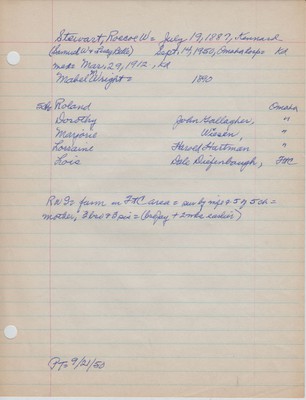 Stewart, Roscoe W = July 19, 1887, Kennard
(Samuel W + Lucy Belle) Sept. 14, 1950, Omaha hosp Kd
mar Mar. 29, 1912, Kd
"Mabel Wright = 1890
5 ch Roland Omaha
Dorothy John Gallagher, "
Marjorie Wiesen, "
Lorraine Harold Hartman "
Lois Dale Diefenbaugh, FtC
Res = farm in FtC area = sur by wife + 5 of 5 ch =
mother, 3 bro + 3 sis =
PT = 9/21/50